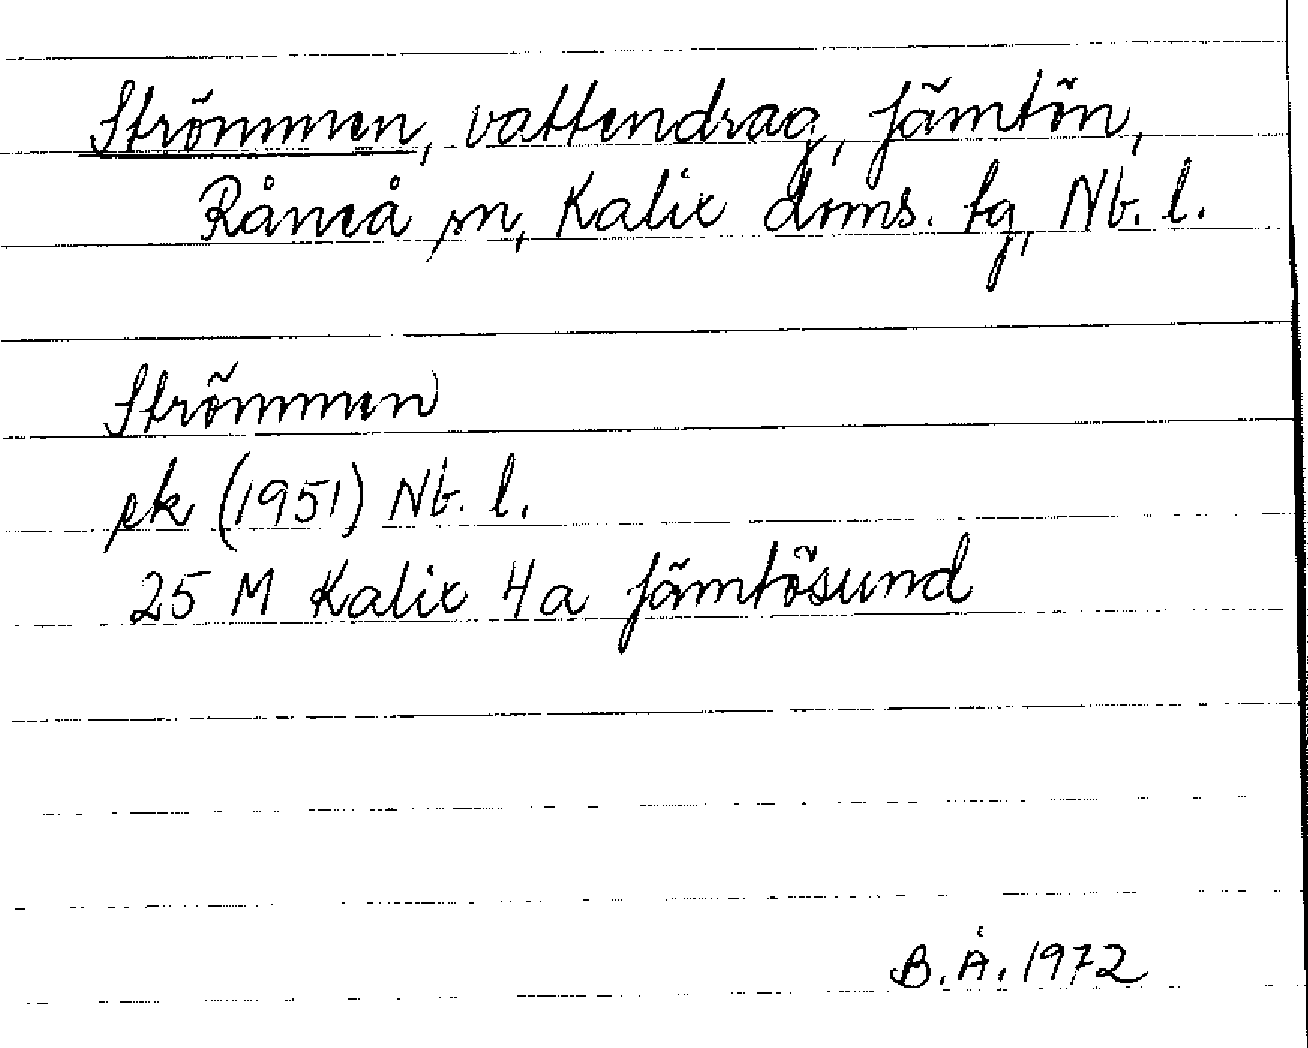 Strömmen, vattendrag, Jämtön,
Råneå sn, Kalix doms. tg, Nb. l.
Strömmen
ek (1951) Nb. l.
25 M Kalix 4a Jämtösund
B.Å. 1972